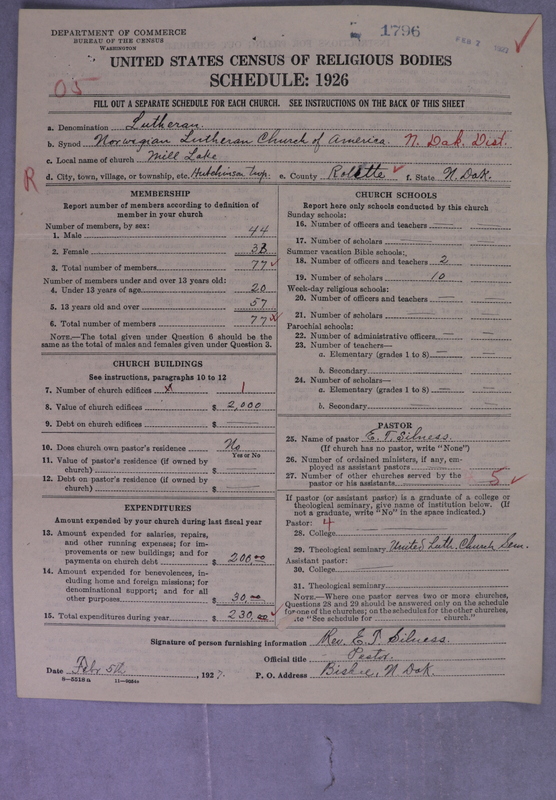 DEPARTMENT OF COMMERCE
BUREAU OF THE CENSUS
WASHINGTON
1796
UNITED STATES CENSUS OF RELIGIOUS BODIES
SCHEDULE: 1926
05
FILL OUT A SEPARATE SCHEDULE FOR EACH CHURCH. SEE INSTRUCTIONS ON THE BACK OF THIS SHEET
a. Denomination Lutheran.
b. Synod Norwegian Lutheran Church of America. N. Dak. Dist.
c. Local name of church Mill Lake
d. City, town, village, or township, etc. Hutchinson twp. e. County Rolette f. State N. Dak.
R
MEMBERSHIP
Report number of members according to definition of
member in your church
Number of members, by sex:
1. Male 44
2. Female 33
3. Total number of members 77
Number of members under and over 13 years old:
4. Under 13 years of age 20
5. 13 years old and over 57
6. Total number of members 77
NOTE.—The total given under Question 6 should be
same as the total of males and females given under Question 3.
CHURCH BUILDINGS
See instructions, paragraphs 10 to 12
7. Number of church edifices 1
8. Value of church edifices $ 2,000
9. Debt on church edifices $
10. Does church own pastor's residence No
Yes or No
11. Value of pastor's residence (if owned by
church) $
12. Debt on pastor's residence (if owned by
church) $
EXPENDITURES
Amount expended by your church during last fiscal year
13. Amount expended for salaries, repairs,
and other running expenses; for im-
provements or new buildings; and for
payments on church debt $ 200.00
14. Amount expended for benevolences, in-
cluding home and foreign missions; for
denominational support; and for all
other purposes $ 30.00
15. Total expenditures during year $ 230.00
CHURCH SCHOOLS
Report here only schools conducted by this church
Sunday schools:
16. Number of officers and teachers
17. Number of scholars
Summer vacation Bible schools:
18. Number of officers and teachers 2
19. Number of scholars 10
Week-day religious schools:
20. Number of officers and teachers
21. Number of scholars
Parochial schools:
22. Number of administrative officers
23. Number of teachers—
a. Elementary (grades 1 to 8)
b. Secondary
24. Number of scholars—
a. Elementary (grades 1 to 8)
b. Secondary
PASTOR
25. Name of pastor E. T. Silness.
(If church has no pastor, write "None")
26. Number of ordained ministers, if any, em-
ployed as assistant pastors
27. Number of other churches served by the
pastor or his assistants 5
If pastor (or assistant pastor) is a graduate of a college or
theological seminary, give name of institution below. (If
not a graduate, write "No" in the space indicated.)
Pastor: 4
28. College
29. Theological seminary United Luth. Church Sem.
Assistant pastor:
30. College
31. Theological seminary
NOTE.—Where one pastor serves two or more churches,
Questions 28 and 29 should be answered only on the schedule
for one of the churches; on the schedules for the other churches,
write "See schedule for church."
Signature of person furnishing information Rev. E. T. Silness.
Official title Pastor.
Date Feb. 5th, 1927. P. O. Address Bisbee, N. Dak.